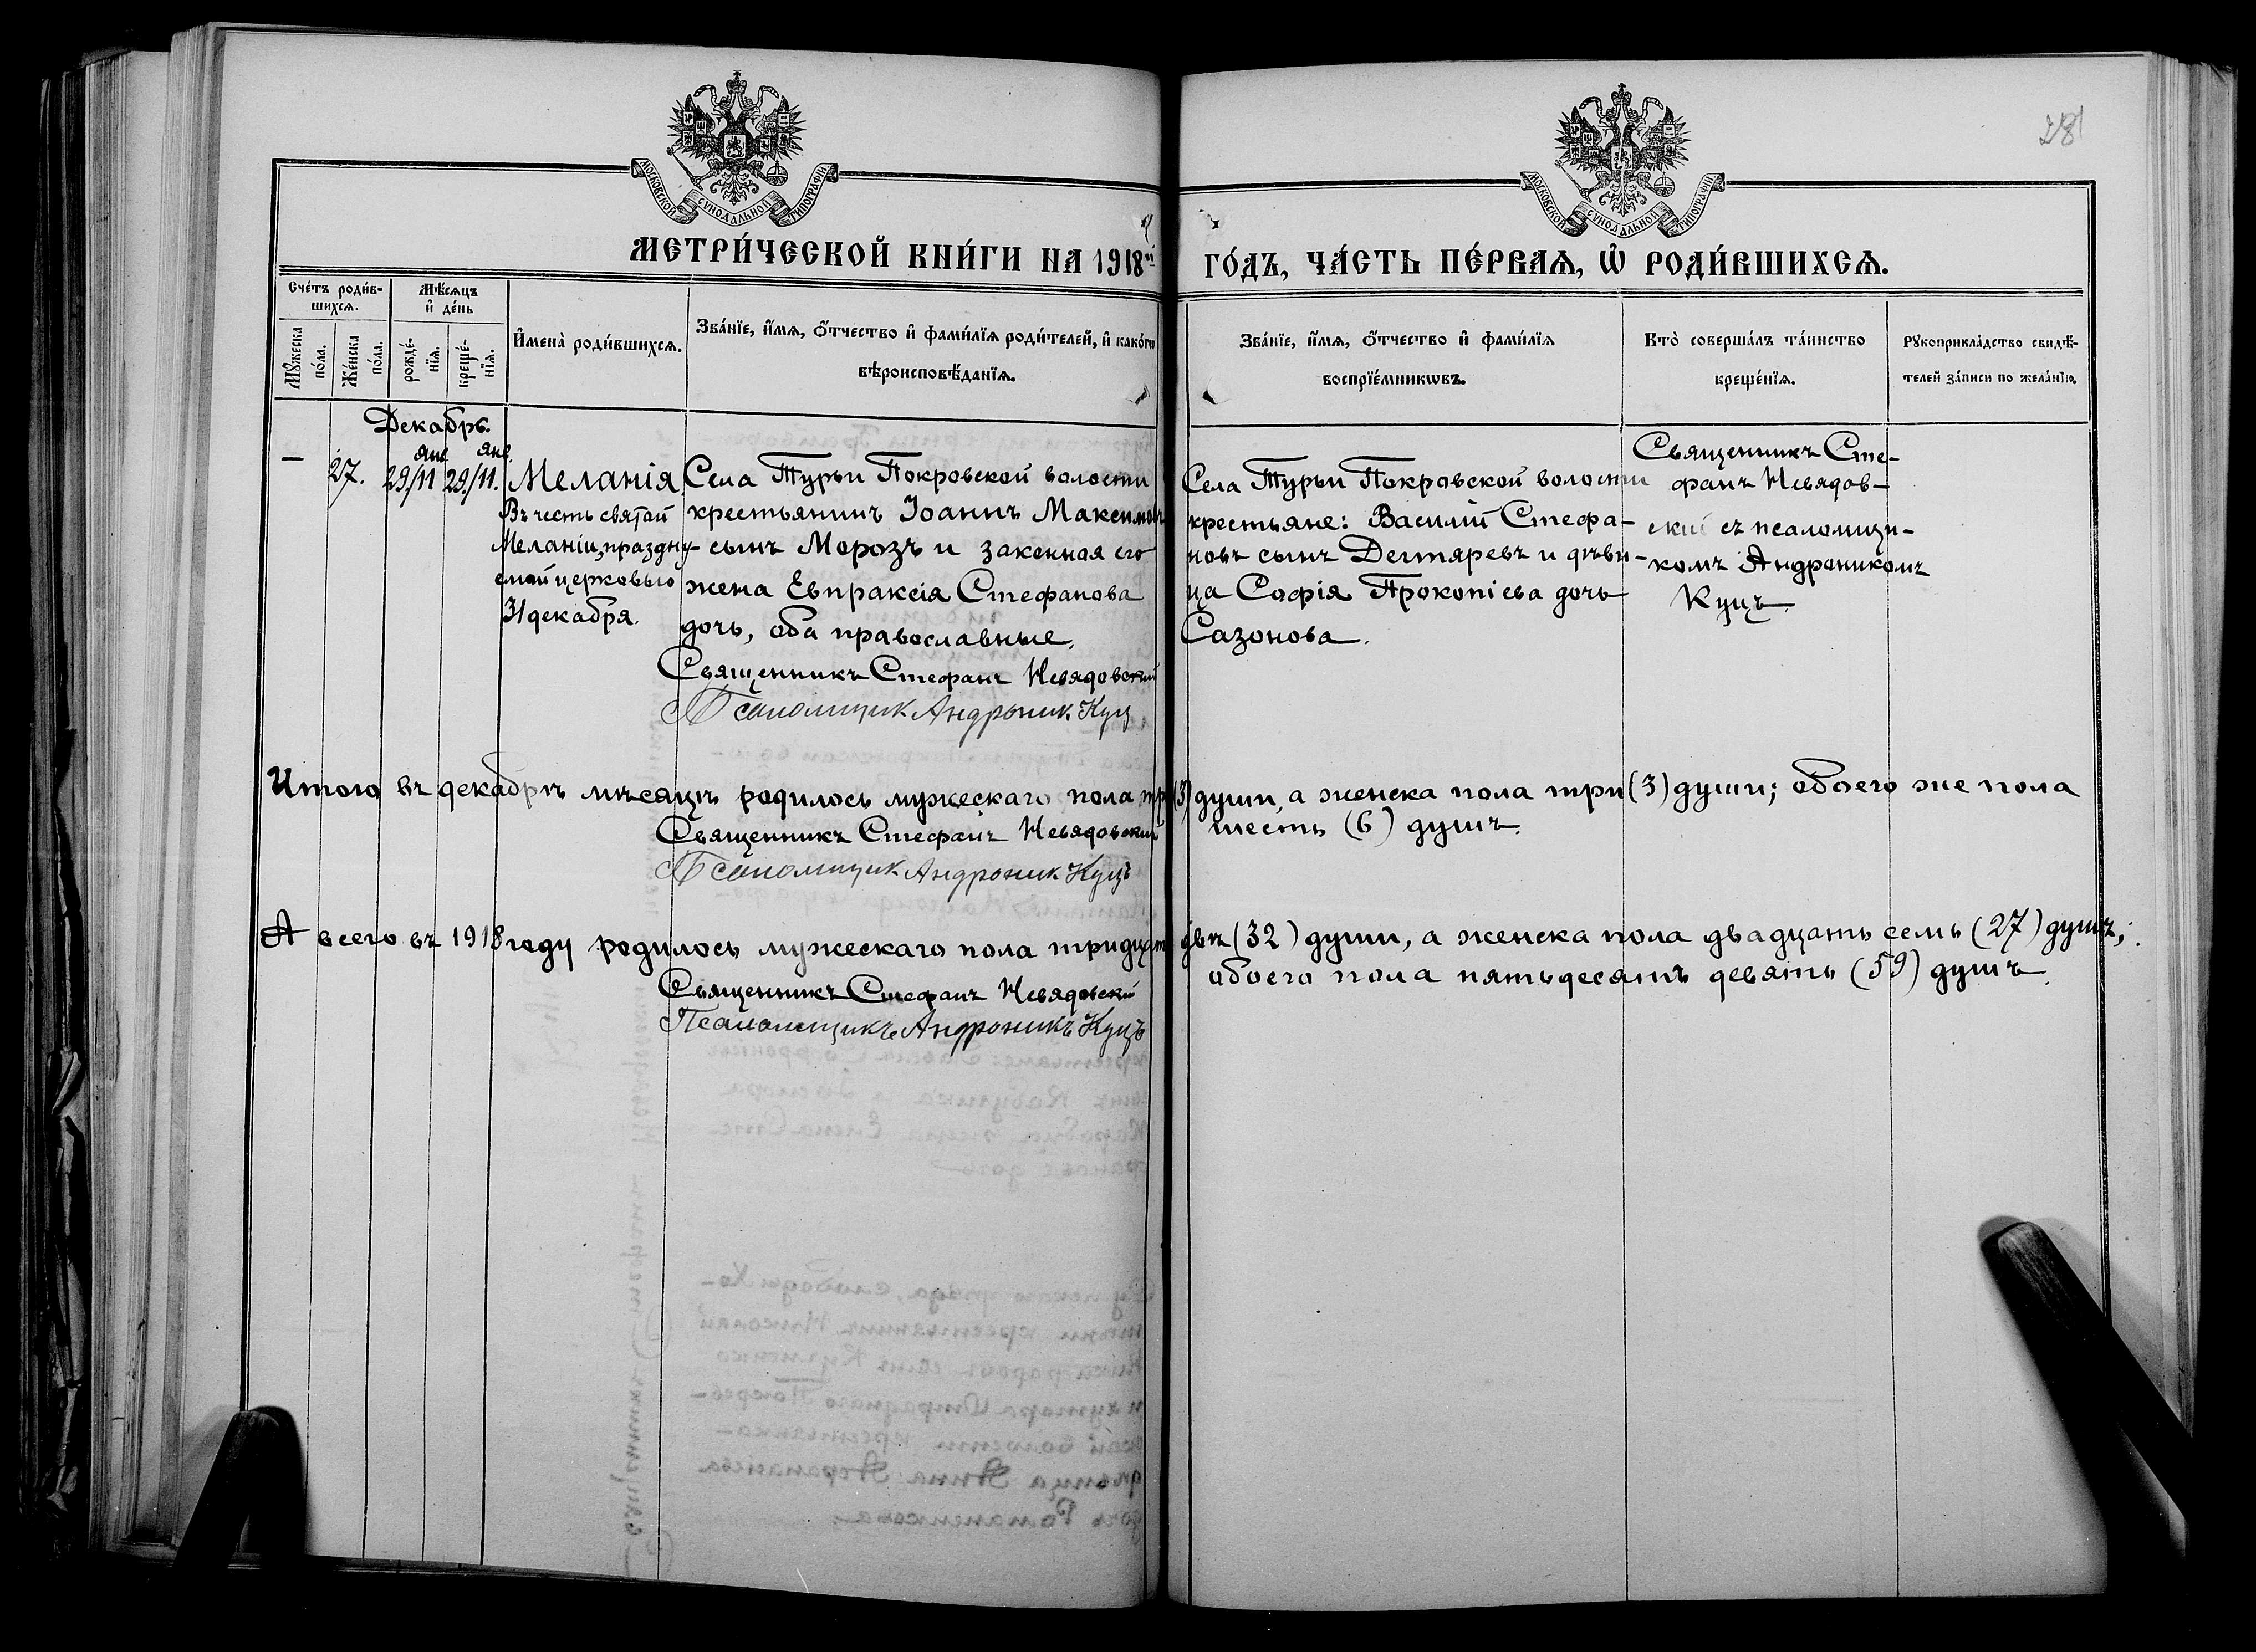 281
МОСКОВСКОЙ СѴНОДАЛЬНОЙ ТИПОГРАФІИ.
МОСКОВСКОЙ СѴНОДАЛЬНОЙ ТИПОГРАФІИ.
МЕТРИ́ЧЕСКОЙ КНИ́ГИ НА 1918 й
ГО́ДЪ, ЧА́СТЬ ПЕ́РВАѦ, Ѡ҆ РОДИ́ВШИХСѦ.
Сче́тъ роди́в-
шихсѧ.
Мꙋ́жеска по́ла.
Же́нска по́ла.
Мѣ́сѧцъ и҆ де́нь
рожде́-
нїѧ.
креще́-
нїѧ.
И҆мена̀ роди́вшихсѧ.
Зва́нїе, и҆́мѧ, ѻ҆́тчество и҆ фами́лїѧ роди́телей, и҆ како́гѡ
вѣроисповѣ́данїѧ.
Зва́нїе, и҆́мѧ, ѻ҆́тчество и҆ фами́лїѧ
воспрїе́мникѡвъ.
Кто̀ соверша́лъ та́инство
креще́нїѧ.
Рꙋкоприкла́дство свидѣ́-
телей за́писи по жела́нїю.
Декабрь.
янв янв.
–
27.
29/11
29/11.
Меланія
Въ честь святой
Меланіи, праздну-
емой церковью
31 декабря.
Села Турьи Покровской волости
крестьянинъ Іоаннъ Максимовъ
сынъ Морозъ и законная его
жена Евпраксія Стефанова
дочь, оба православные.
Священникъ Стефанъ Невядовскій
Псаломщик Андроник Куц
Села Турьи Покровской волости
крестьяне: Василій Стефа-
новъ сынъ Дегтяревъ и дѣви-
ца Софія Прокопіева дочь
Сазонова.
Священникъ Сте-
фанъ Невядов-
скій съ псаломщи-
комъ Андроникомъ
Куцъ.
Итого въ декабрѣ мѣсяцѣ родилось мужескаго пола три (3) души, а женска пола три (3) души; обоего же пола
шесть (6) душъ.
Священникъ Стефанъ Невядовскій
Псаломщик Андроник Куцъ
А всего въ 1918 году родилось мужескаго пола тридцать двѣ (32) души, а женска пола двадцать семь (27) душъ;
обоего пола пятьдесятъ девять (59) душъ.
Священникъ Стефанъ Невядовскій
Псаломщикъ Андроникъ Куцъ